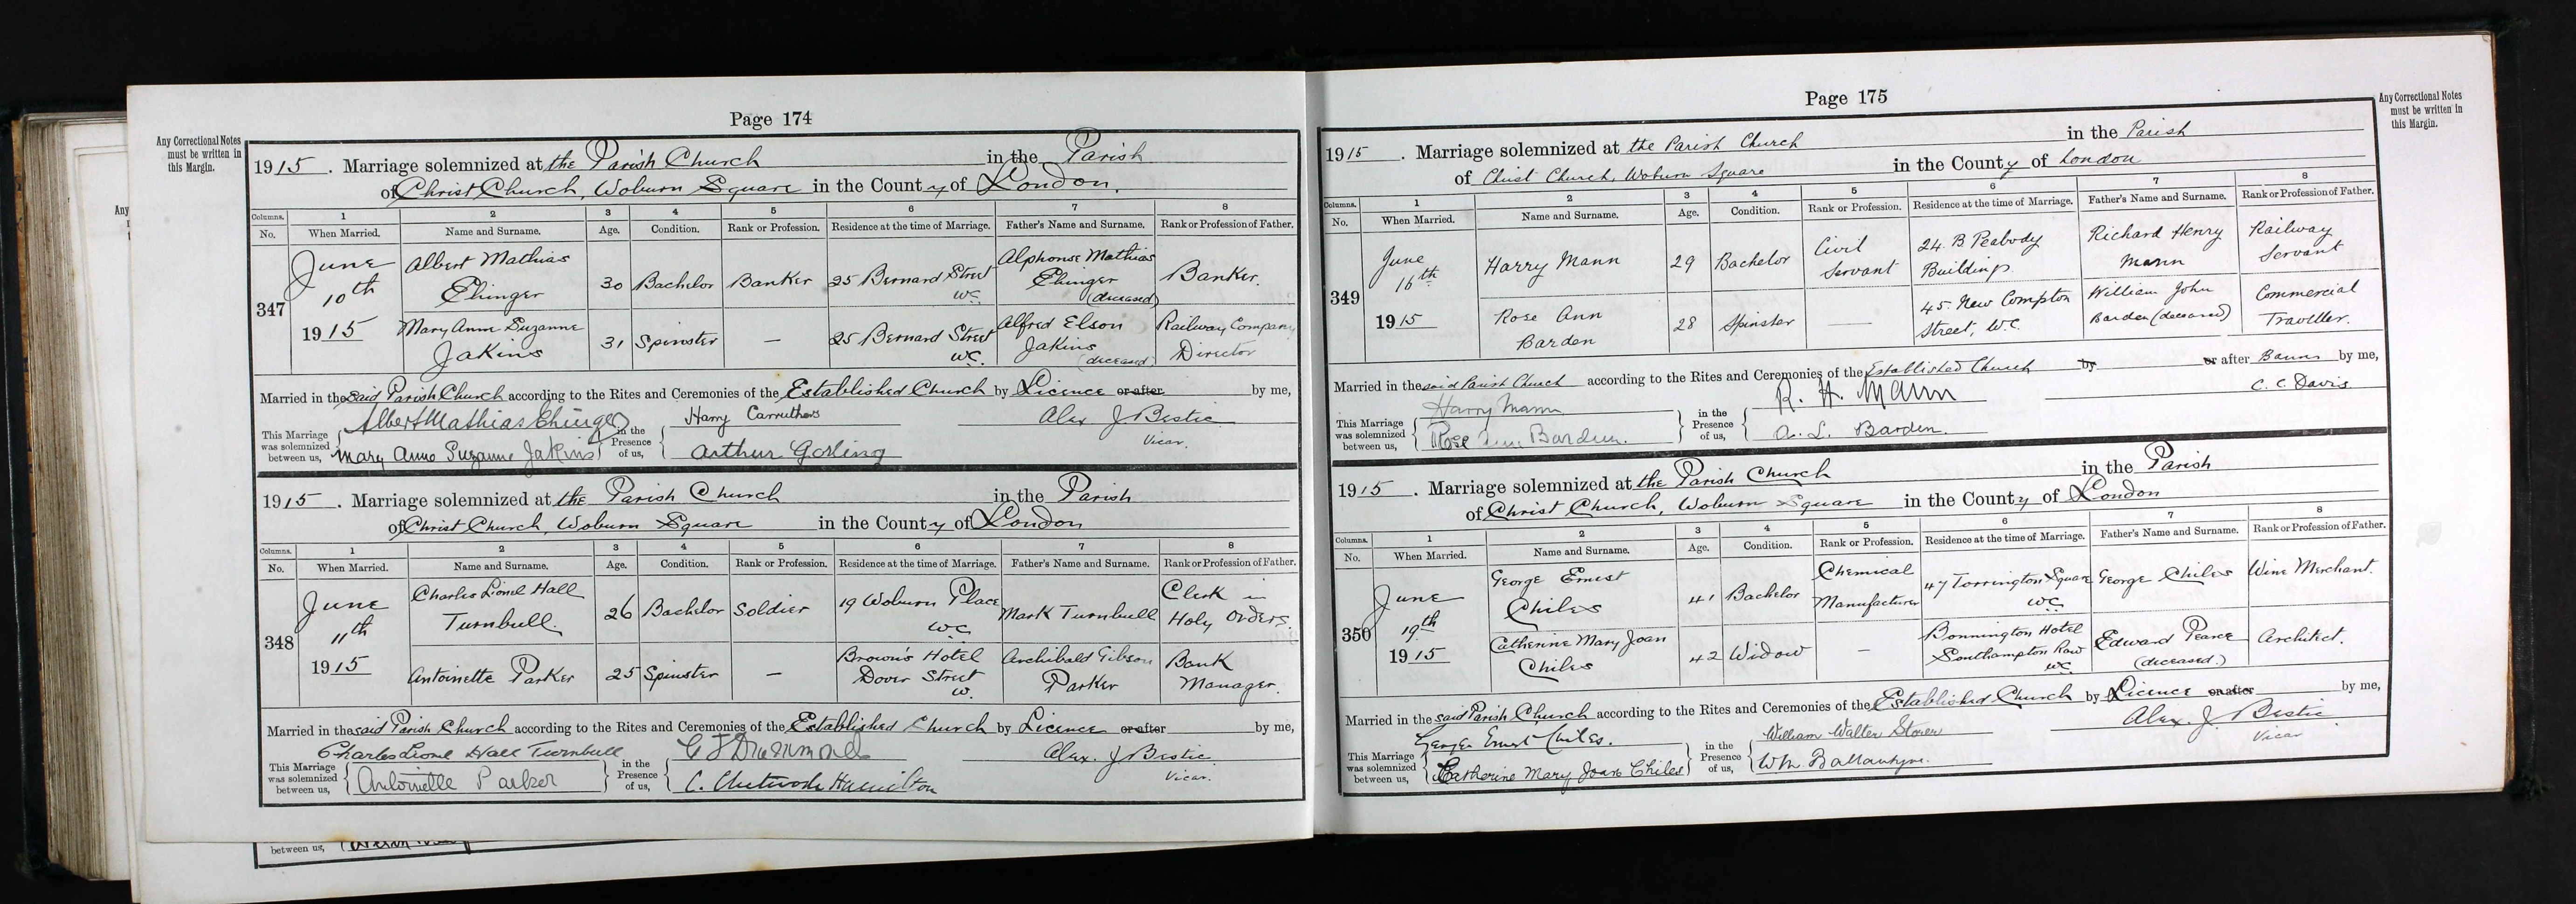 Page 174
Any Correctional Notes
must be written in
this Margin.
1915. Marriage solemnized at the Parish Church in the Parish
of Christ Church, Woburn Square in the County of London.
Columns. 1 2 3 4 5 6 7 8
No. When Married. Name and Surname. Age. Condition. Rank or Profession. Residence at the time of Marriage. Father's Name and Surname. Rank or Profession of Father.
347
June
10th
1915
Albert Mathias
Ehinger
30 Bachelor Banker 25 Bernard Street
W.C.
Alphonse Mathias
Ehinger
(deceased)
Banker.
Mary Anne Suzanne
Jakins
31 Spinster — 25 Bernard Street
W.C.
Alfred Elson
Jakins
(deceased)
Railway Company
Director
Married in the said Parish Church according to the Rites and Ceremonies of the Established Church by Licence or after by me,
This Marriage
was solemnized
between us,
Albert Mathias Ehinger
Mary Anne Suzanne Jakins
in the
Presence
of us,
Harry Carruthers
Arthur Gosling
Alex J. Bestic
Vicar.
1915. Marriage solemnized at the Parish Church in the Parish
of Christ Church, Woburn Square in the County of London
Columns. 1 2 3 4 5 6 7 8
No. When Married. Name and Surname. Age. Condition. Rank or Profession. Residence at the time of Marriage. Father's Name and Surname. Rank or Profession of Father.
348
June
11th
1915
Charles Lionel Hall
Turnbull.
26 Bachelor Soldier 19 Woburn Place
W.C.
Mark Turnbull
Clerk in
Holy Orders.
Antoinette Parker
25 Spinster — Brown's Hotel
Dover Street
W.
Archibald Gibson
Parker
Bank
Manager.
Married in the said Parish Church according to the Rites and Ceremonies of the Established Church by Licence or after by me,
This Marriage
was solemnized
between us,
Charles Lionel Hall Turnbull
Antoinette Parker
in the
Presence
of us,
Drummond
C. Chetwode Hamilton
Alex. J Bestic
Vicar.
between us,
Any
Page 175
Any Correctional Notes
must be written in
this Margin.
1915. Marriage solemnized at the Parish Church in the Parish
of Christ Church, Woburn Square in the County of London
Columns. 1 2 3 4 5 6 7 8
No. When Married. Name and Surname. Age. Condition. Rank or Profession. Residence at the time of Marriage. Father's Name and Surname. Rank or Profession of Father.
349
June
16th
1915
Harry Mann
29 Bachelor Civil
Servant
24. B Peabody
Buildings.
Richard Henry
Mann
Railway
Servant
Rose Ann
Barden
28 Spinster — 45. New Compton
Street, W.C.
William John
Barden (deceased)
Commercial
Traveller.
Married in the said Parish Church according to the Rites and Ceremonies of the Established Church by or after Banns by me,
This Marriage
was solemnized
between us,
Harry Mann
Rose Ann Barden.
in the
Presence
of us,
R. H. Mann
A. L. Barden.
C. C. Davis
1915. Marriage solemnized at the Parish Church in the Parish
of Christ Church, Woburn Square in the County of London
Columns. 1 2 3 4 5 6 7 8
No. When Married. Name and Surname. Age. Condition. Rank or Profession. Residence at the time of Marriage. Father's Name and Surname. Rank or Profession of Father.
350
June
19th
1915
George Ernest
Chiles
41 Bachelor Chemical
Manufacturer
47 Torrington Square
W.C.
George Chiles
Wine Merchant.
Catherine Mary Joan
Chiles
42 Widow — Bonnington Hotel
Southampton Row
W.C.
Edward Pearce
(deceased.)
Architect.
Married in the said Parish Church according to the Rites and Ceremonies of the Established Church by Licence or after by me,
This Marriage
was solemnized
between us,
George Ernest Chiles.
Catherine Mary Joan Chiles
in the
Presence
of us,
William Walter Storer
Wm. Ballantyne.
Alex. J. Bestic
Vicar